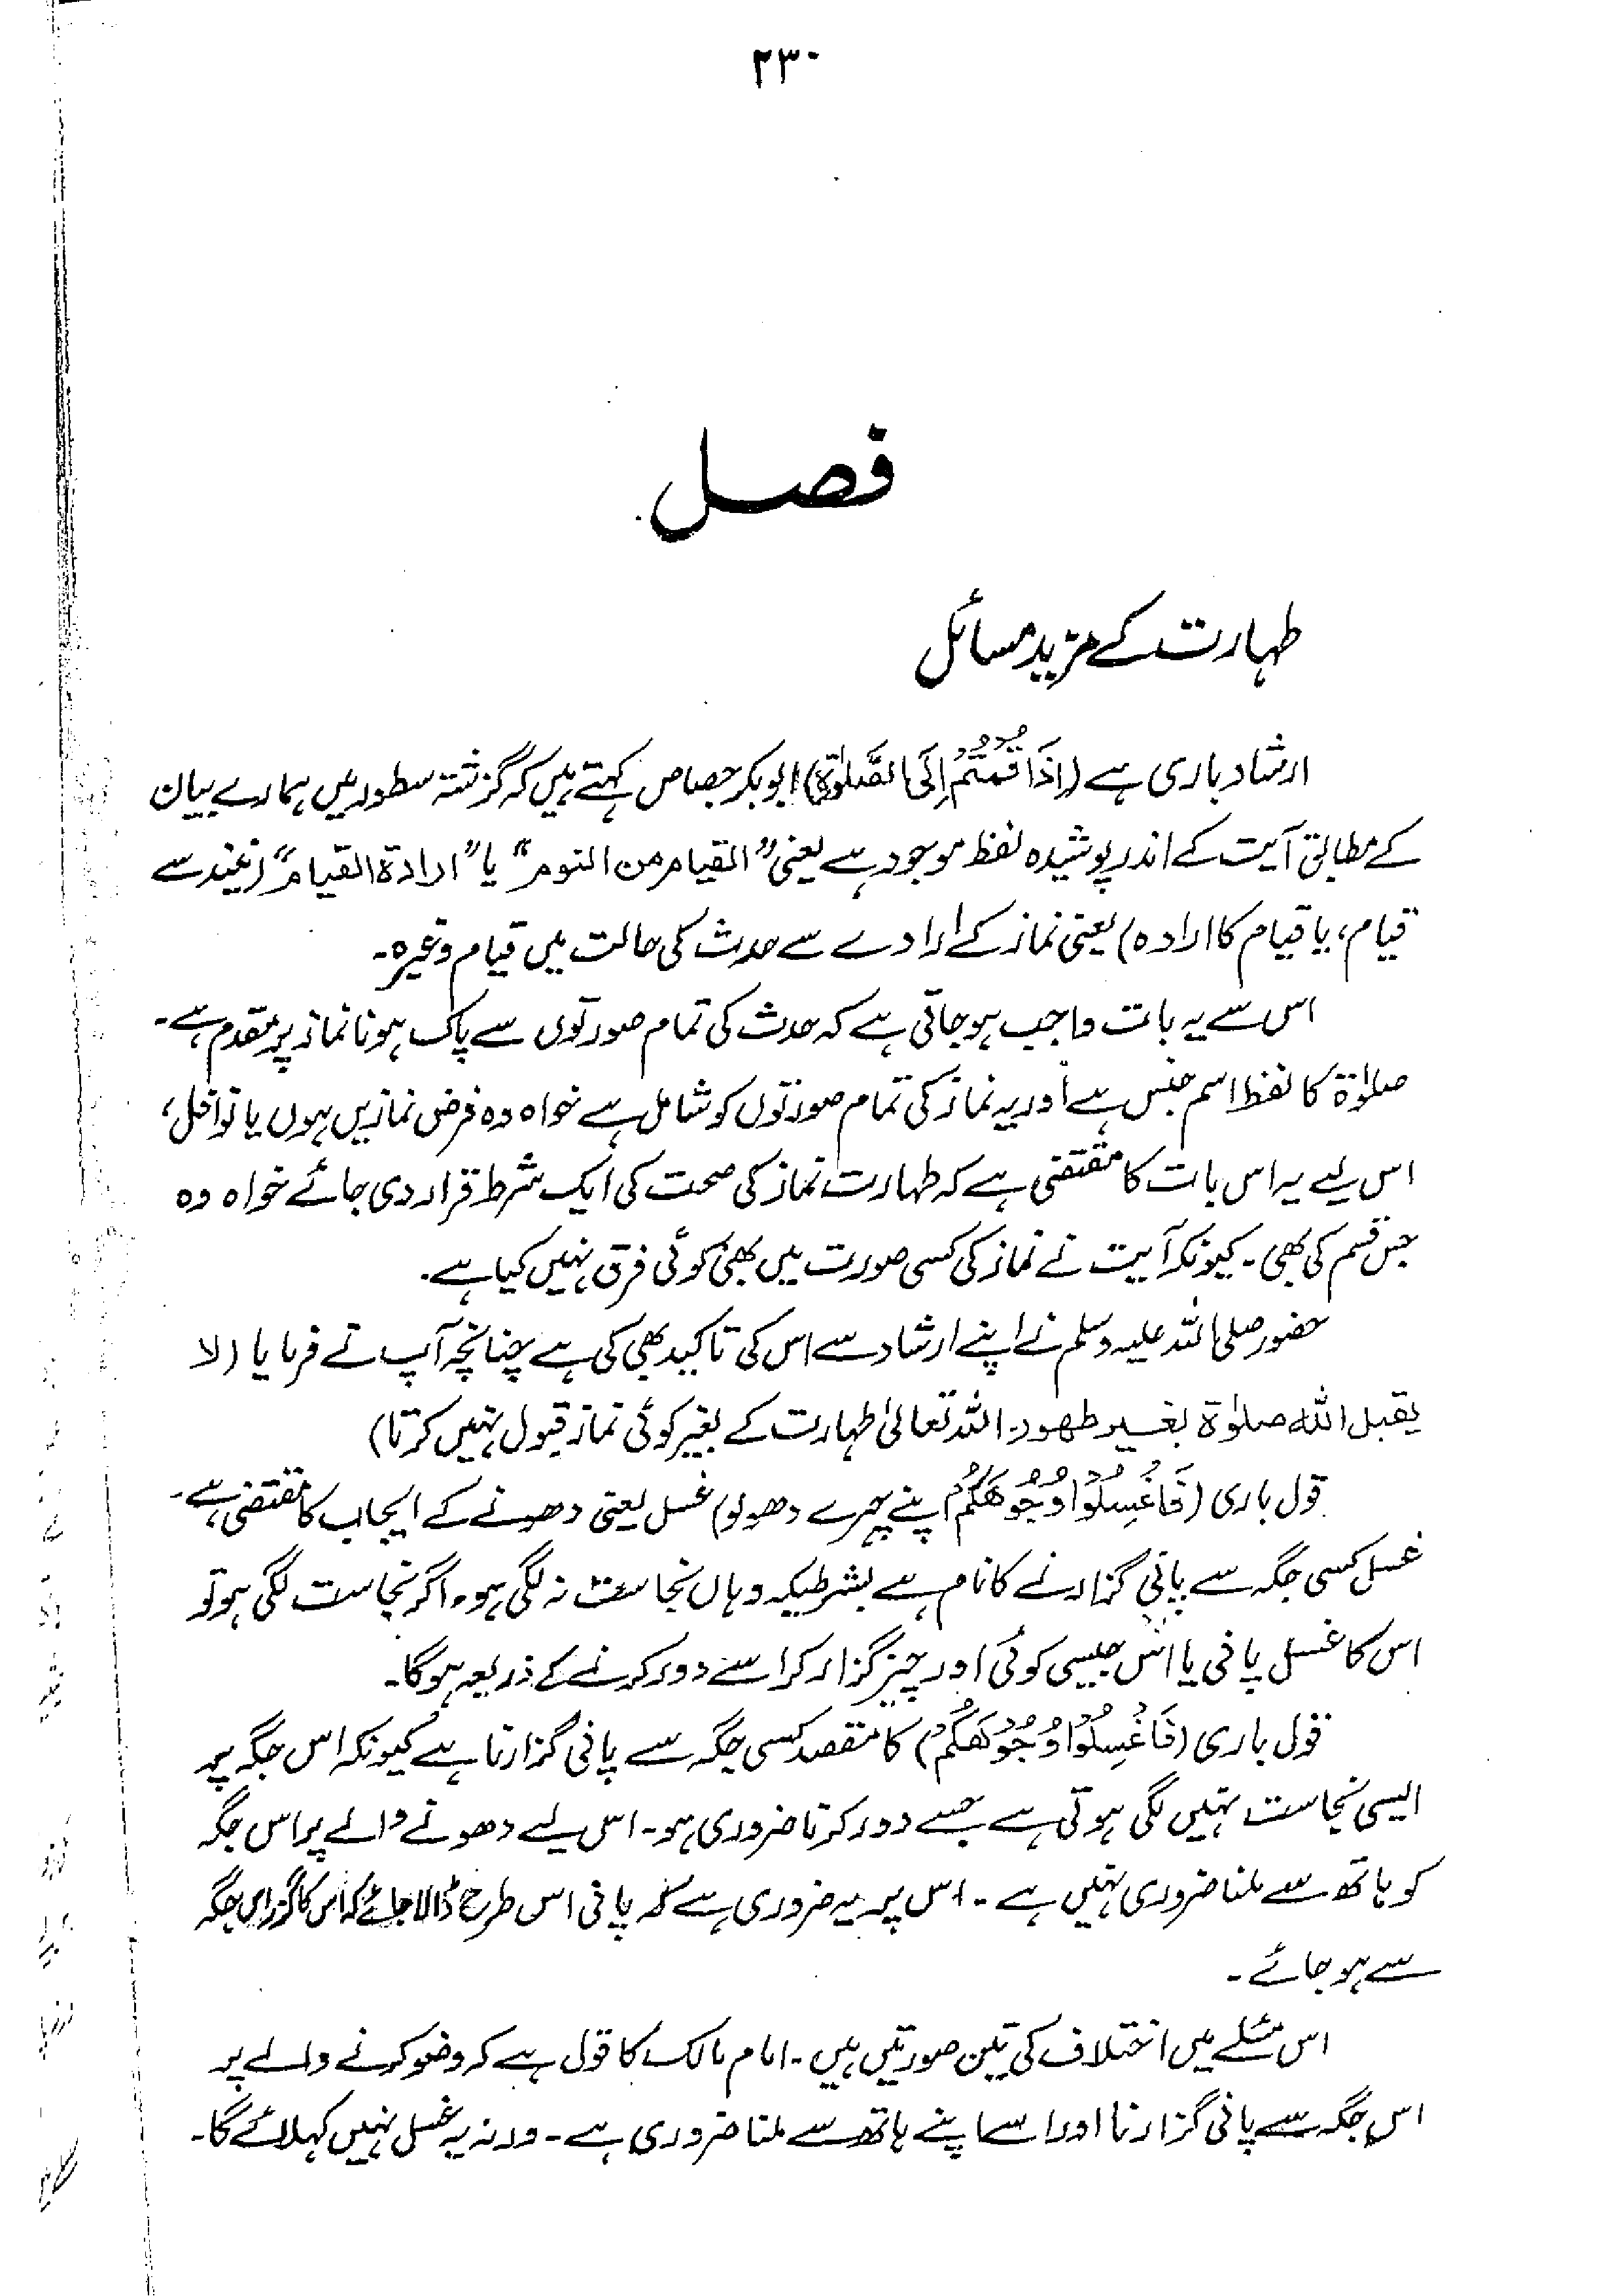 ۲۳۰
فصل
طہارت کے مزید مسائل
ارشاد باری ہے (اِذَا قُمْتُمْ اِلَی الصَّلٰوۃِ) ابوبکر جصاص کہتے ہیں کہ گزشتہ سطور میں ہمارے بیان
کے مطابق آیت کے اندر پوشیدہ لفظ موجود ہے یعنی "القیام من النوم" یا "ارادۃ القیام" (نیند سے
قیام، یا قیام کا ارادہ) یعنی نماز کے ارادے سے حدث کی حالت میں قیام وغیرہ۔
اس سے یہ بات واجب ہو جاتی ہے کہ حدث کی تمام صورتوں سے پاک ہونا نماز پر مقدم ہے۔
صلوٰۃ کا لفظ اسم جنس ہے اور یہ نماز کی تمام صورتوں کو شامل ہے خواہ وہ فرض نمازیں ہوں یا نوافل،
اس لیے یہ اس بات کا مقتضی ہے کہ طہارت نماز کی صحت کی ایک شرط قرار دی جائے خواہ وہ
جس قسم کی بھی۔ کیونکہ آیت نے نماز کی کسی صورت میں بھی کوئی فرق نہیں کیا ہے۔
حضور صلی اللہ علیہ وسلم نے اپنے ارشاد سے اس کی تاکید بھی کی ہے چنانچہ آپ نے فرمایا (لا
یقبل اللہ صلوٰۃ بغیر طھور۔ اللہ تعالیٰ طہارت کے بغیر کوئی نماز قبول نہیں کرتا)
قول باری (فَاغْسِلُوْا وُجُوْھَکُمْ اپنے چہرے دھولو) غسل یعنی دھونے کے ایجاب کا مقتضی ہے۔
غسل کسی جگہ سے پانی گزارنے کا نام ہے بشرطیکہ وہاں نجاست نہ لگی ہو۔ اگر نجاست لگی ہو تو
اس کا غسل پانی یا اس جیسی کوئی اور چیز گزار کر اسے دور کرنے کے ذریعہ ہوگا۔
قول باری (فَاغْسِلُوْا وُجُوْھَکُمْ) کا مقصد کسی جگہ سے پانی گزارنا ہے کیونکہ اس جگہ پر
ایسی نجاست نہیں لگی ہوتی ہے جسے دور کرنا ضروری ہو۔ اس لیے دھونے والے پر اس جگہ
کو ہاتھ سے ملنا ضروری نہیں ہے۔ اس پر یہ ضروری ہے کہ پانی اس طرح ڈالا جائے کہ اس کا گزر اس جگہ
سے ہو جائے۔
اس مسئلے میں اختلاف کی تین صورتیں ہیں۔ امام مالک کا قول ہے کہ وضو کرنے والے پر
اس جگہ سے پانی گزارنا اور اسے اپنے ہاتھ سے ملنا ضروری ہے۔ ورنہ یہ غسل نہیں کہلائے گا۔